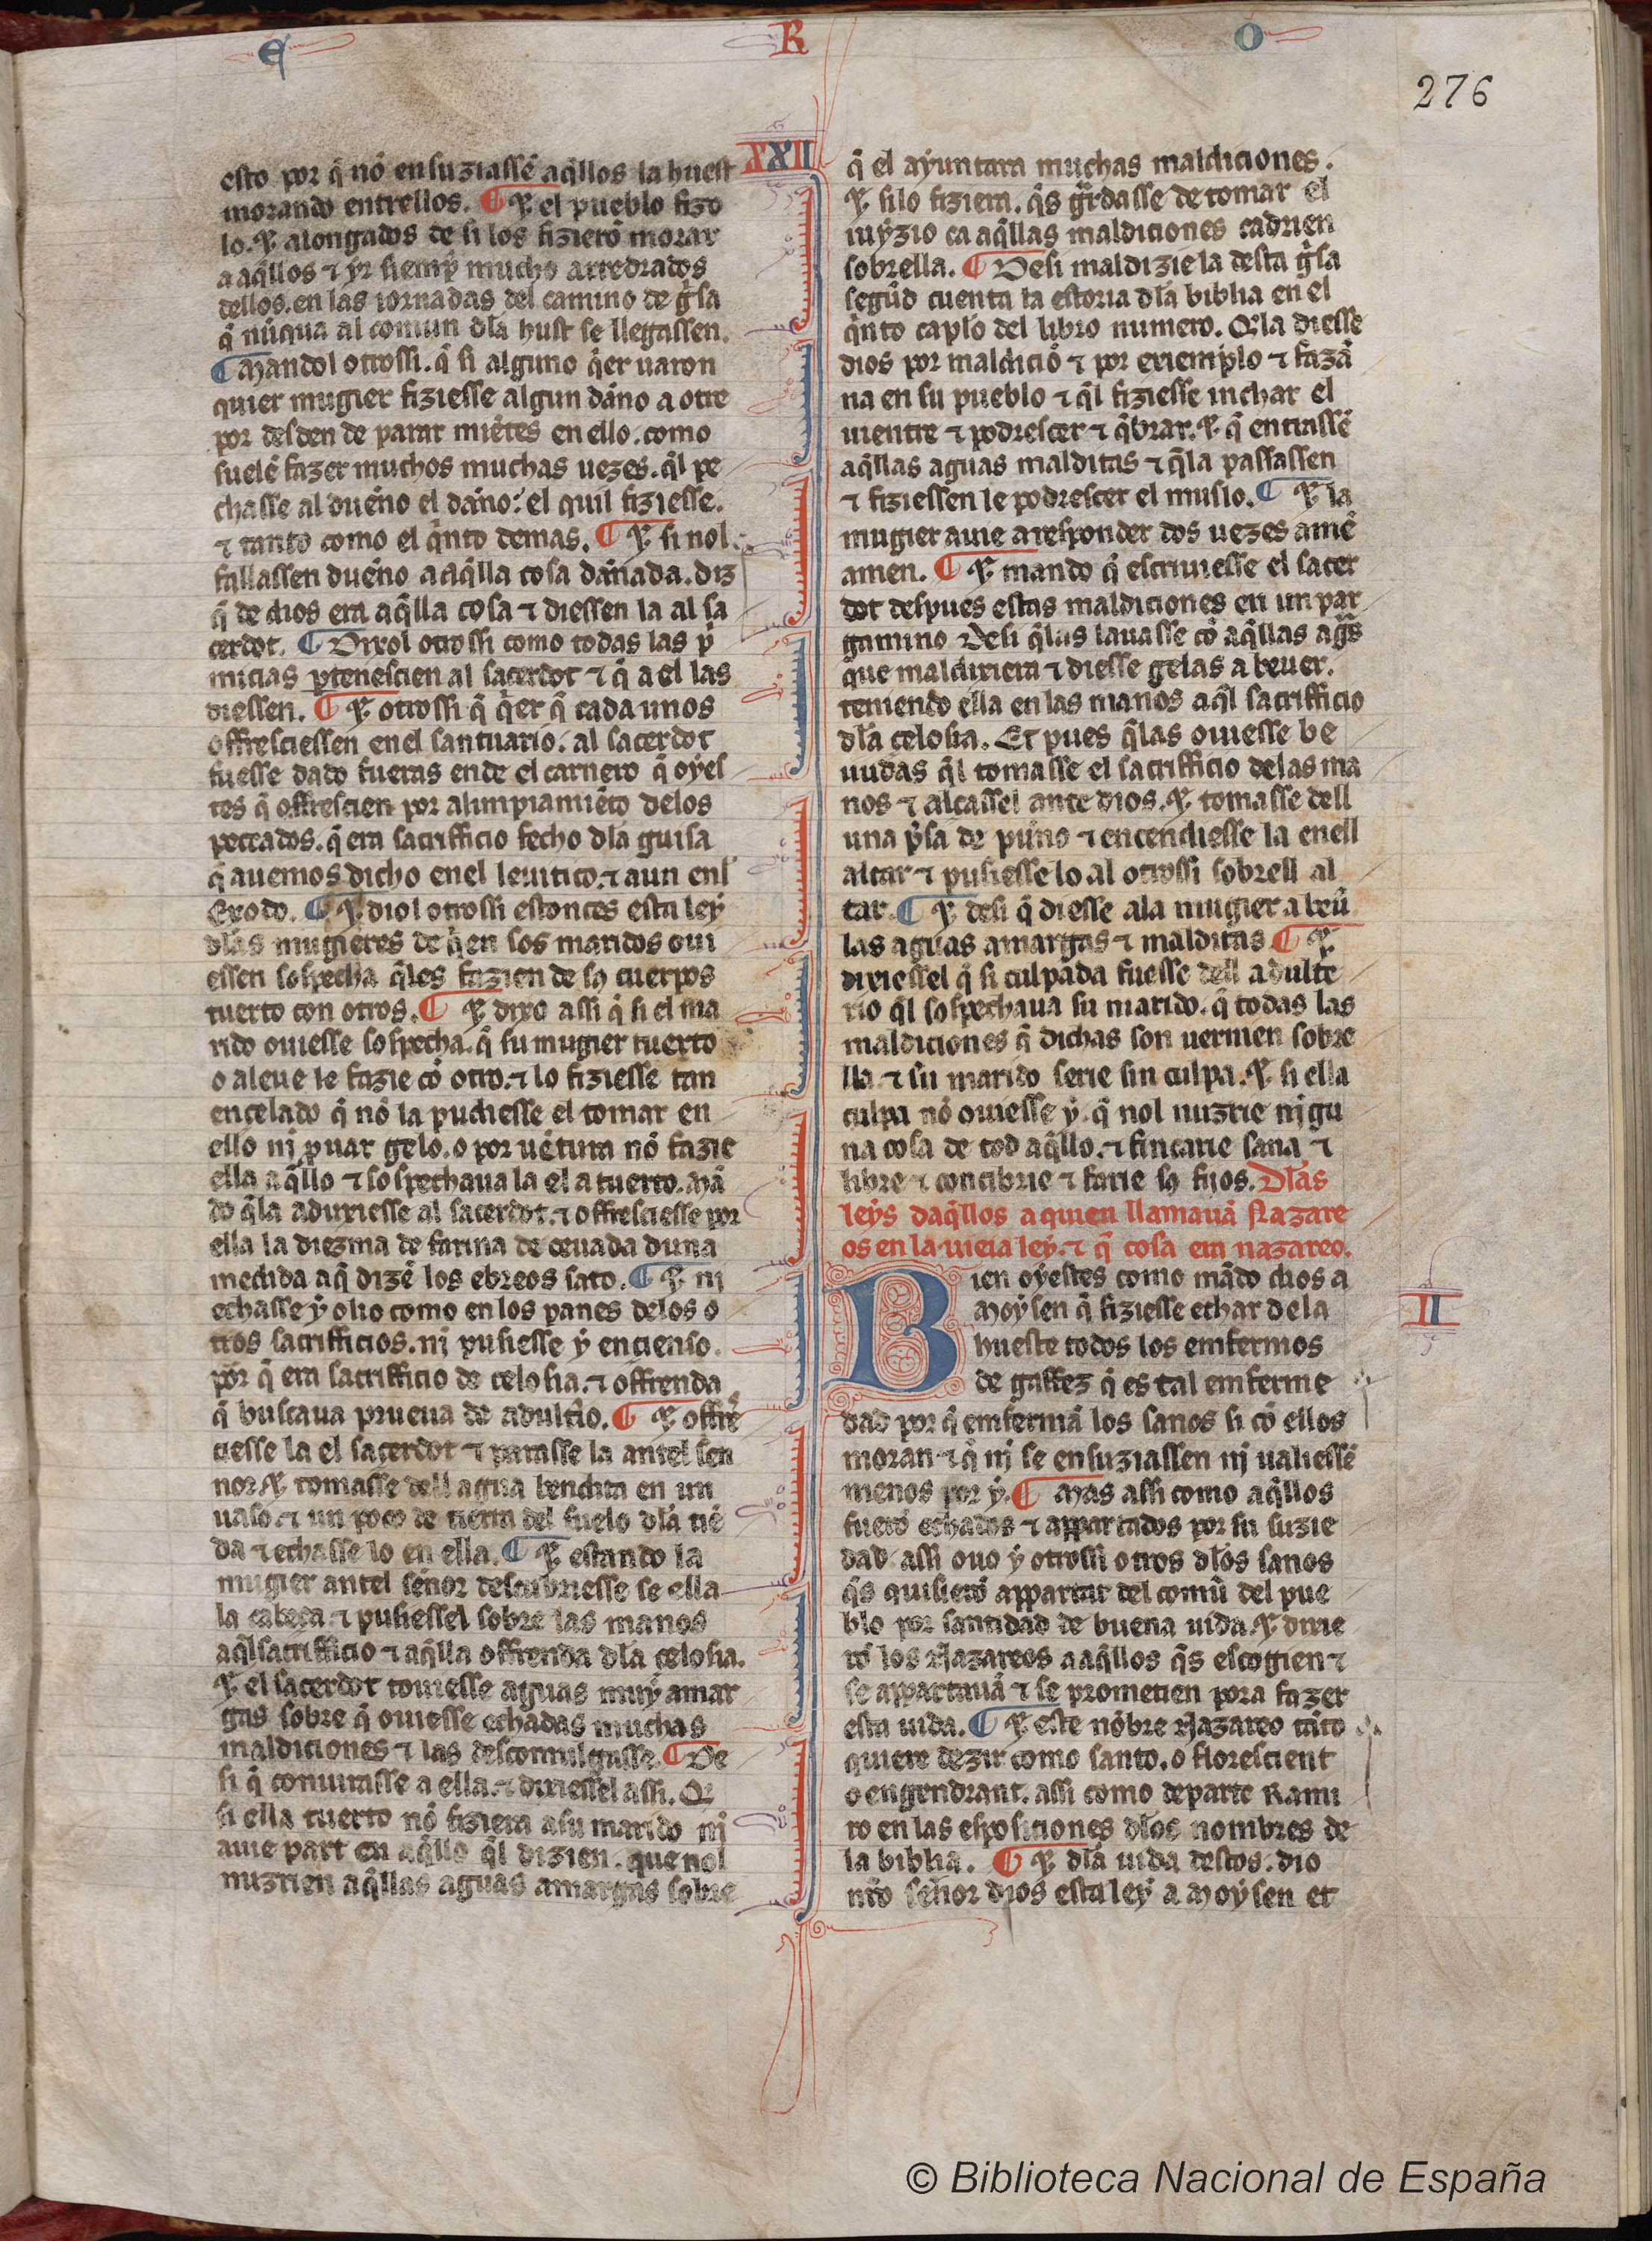 E R O
276
XXII
esto por q̃ nõ ensuziassẽ aq̃llos la huest
morando entrellos. ¶ Et el pueblo fizo
lo. Et alongados de si los fizierõ morar
a aq̃llos ⁊ yr siemp̃ mucho arredrados
dellos. en las iornadas del camino de gͥsa
q̃ nũqua al comun dla hust se llegassen.
¶ Mandol otrossi. q̃ si alguno qͥer uaron
quier mugier fiziesse algun dãno a otre
por desden de parar miẽtes en ello. como
suelẽ fazer muchos muchas uezes. q̃l pe
chasse al dueño el dãno. el quil fiziesse.
⁊ tanto como el qͥnto demas. ¶ Et si nol
fallassen dueño a aq̃lla cosa dãnada. diz
q̃ de dios era aq̃lla cosa ⁊ diessen la al sa
cerdot. ¶ Dixol otrossi como todas las pͥ
micias ꝑtenescien al sacerdot ⁊ q̃ a el las
diessen. ¶ Et otrossi q̃ qͥer q̃ cada unos
offresciessen enel santuario. al sacerdot
fuesse dado fueras ende el carnero q̃ oyes
tes q̃ offrescien por alimpiamiẽto delos
peccados. q̃ era sacrifficio fecho dla guisa
q̃ auemos dicho enel leuitico. ⁊ aun enl
Exodo. ¶ Et diol otrossi estonces esta ley
dlas mugieres de qͥen sos maridos oui
essen sospecha q̃les fazien de sꝯ cuerpos
tuerto con otros. ¶ Et dixo assi q̃ si el ma
rido ouiesse sospecha. q̃ su mugier tuerto
o aleue le fazie cõ otro. ⁊ lo fiziesse tan
encelado q̃ nõ la pudiesse el tomar en
ello nj ꝓuar gelo. o por uẽtura nõ fazie
ella aq̃llo ⁊ sospechaua la el a tuerto. Mã
do q̃la aduxiesse al sacerdot. ⁊ offresciesse por
ella la diezma de farina de ceuada duna
medida a q̃ dizẽ los ebreos sato. ¶ Et nj
echasse y olio como en los panes delos o
tros sacrifficios. nj pusiesse y encienso.
por q̃ era sacrifficio de celosia. ⁊ offrenda
q̃ buscaua prueua de adultͥio. ¶ Et offrẽ
ciesse la el sacerdot ⁊ parasse la antel sen
nor. Et tomasse dell agua bendita en un
uaso. ⁊ un poco de tierra del suelo dla tiẽ
da ⁊ echasse lo en ella. ¶ Et estando la
mugier antel señor descubriesse se ella
la cabeça. ⁊ pusiessel sobre las manos
aq̃l sacrifficio ⁊ aq̃lla offrenda dla celosia.
Et el sacerdot touiesse aguas muy amar
gas sobre q̃ ouiesse echadas muchas
maldiciones ⁊ las descomulgasse. ¶ De
si q̃ coniurasse a ella. ⁊ dixiessel assi. Q̃
si ella tuerto nõ fiziera a su marido nj
auie part en aq̃llo q̃l dizien. que nol
nuzrien aq̃llas aguas amargas sobre
q̃ el ayuntara muchas maldiciones.
Et silo fiziera. q̃s gͣrdasse de tomar el
iuyzio ca aq̃llas maldiciones cadrien
sobrella. ¶ Desi maldizie la desta gͥsa
segũd cuenta la estoria dla biblia en el
qͥnto capl̃o del libro numero. Q̃la diesse
dios por maldiciõ ⁊ por exiemplo ⁊ fazã
na en su pueblo ⁊ q̃l fiziesse inchar el
uientre ⁊ podrescer ⁊ q̃brar. Et q̃ entrassẽ
aq̃llas aguas malditas ⁊ q̃la passassen
⁊ fiziessen le podrescer el muslo. ¶ Et la
mugier auie a responder dos uezes amẽ
amen. ¶ Et mando q̃ escriuiesse el sacer
dot despues estas maldiciones en un par
gamino Desi q̃las lauasse cõ aq̃llas agͣs
que maldixiera ⁊ diesse gelas a beuer.
teniendo ella en las manos aq̃l sacrifficio
dla celosia. Et pues q̃las ouiesse be
uudas q̃l tomasse el sacrifficio delas ma
nos ⁊ alçassel ante dios. Et tomasse dell
una pͥsa de puño ⁊ encendiesse la enell
altar ⁊ pusiesse lo al otrossi sobrell al
tar. ¶ Et desi q̃ diesse ala mugier a beũ
las aguas amargas ⁊ malditas ¶ Et
dixiessel q̃ si culpada fuesse dell adulte
rio q̃l sospechaua su marido. q̃ todas las
maldiciones q̃ dichas son uernien sobre
lla. ⁊ su marido serie sin culpa. Et si ella
culpa nõ ouiesse y. q̃ nol nuzrie njgu
na cosa de tod aq̃llo. ⁊ fincarie sana ⁊
libre ⁊ concibrie ⁊ farie sꝯ fijos. Dlas
leys daq̃llos a quien llamauã Nazare
os en la uieia ley. ⁊ q̃ cosa era nazareo.
II
Bien oyestes como mãdo dios a
Moysen q̃ fiziesse echar dela
hueste todos los enfermos
de gaffez q̃ es tal enferme
dad por q̃ enfermã los sanos si cõ ellos
moran ⁊ q̃ nj se ensuziassen nj ualiessẽ
menos por y. ¶ Mas assi como aq̃llos
fuerõ echados ⁊ appartados por su suzie
dad. assi ouo y otrossi otros dlos sanos
q̃s quisierõ appartar del comũ del pue
blo por santidad de buena uida. Et dixie
rõ los Nazareos a aq̃llos q̃s escogien ⁊
se appartauã ⁊ se prometien pora fazer
esta uida. ¶ Et este nõbre Nazareo tãto
quiere dezir como santo. o florescient
o engendrant. assi como departe Rami
ro en las esposiciones dlos nombres de
la biblia. ¶ Et dla uida destos. dio
nr̃o señor dios esta ley a Moysen et
© Biblioteca Nacional de España